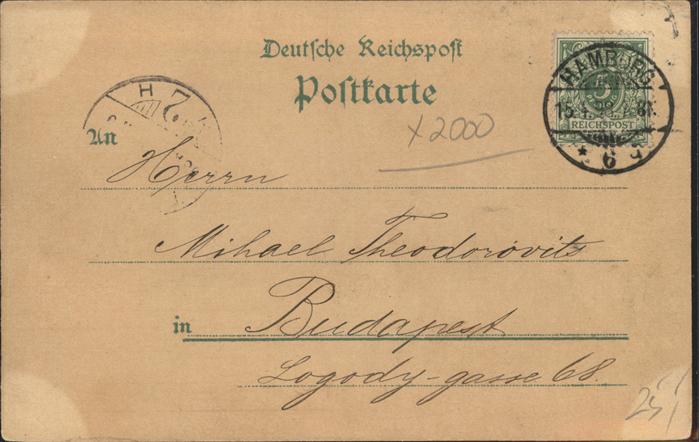 Deutsche Reichspost
Postkarte
5
REICHSPOST
HAMBURG
* 6 g
x2000
An
Herrn
Mihael Theodorovits
in Budapest
Logody-gasse 68.
25